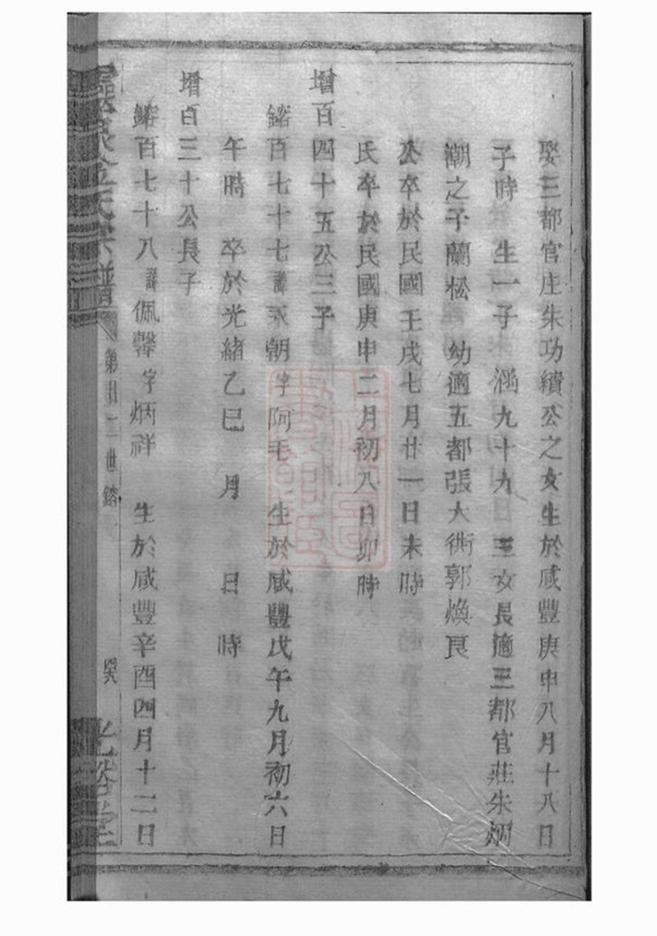 娶三都官庄朱功績公之女生於咸豐庚申八月十八日
子時 生一子 涵九十九 三女長適三都官莊朱烱
潮之子蘭松 幼適五都張大衖郭煥良
公卒於民國壬戌七月廿一日未時
氏卒於民國庚申二月初八日卯時
增百四十五公三子
鎔百七十七諱永朝字阿毛 生於咸豐戊午九月初六日
午時 卒於光緒乙巳 月 日 時
增百三十公長子
鎔百七十八諱佩馨字炳祥 生於咸豐辛酉四月十二日
氏宗譜 第 二世鎔